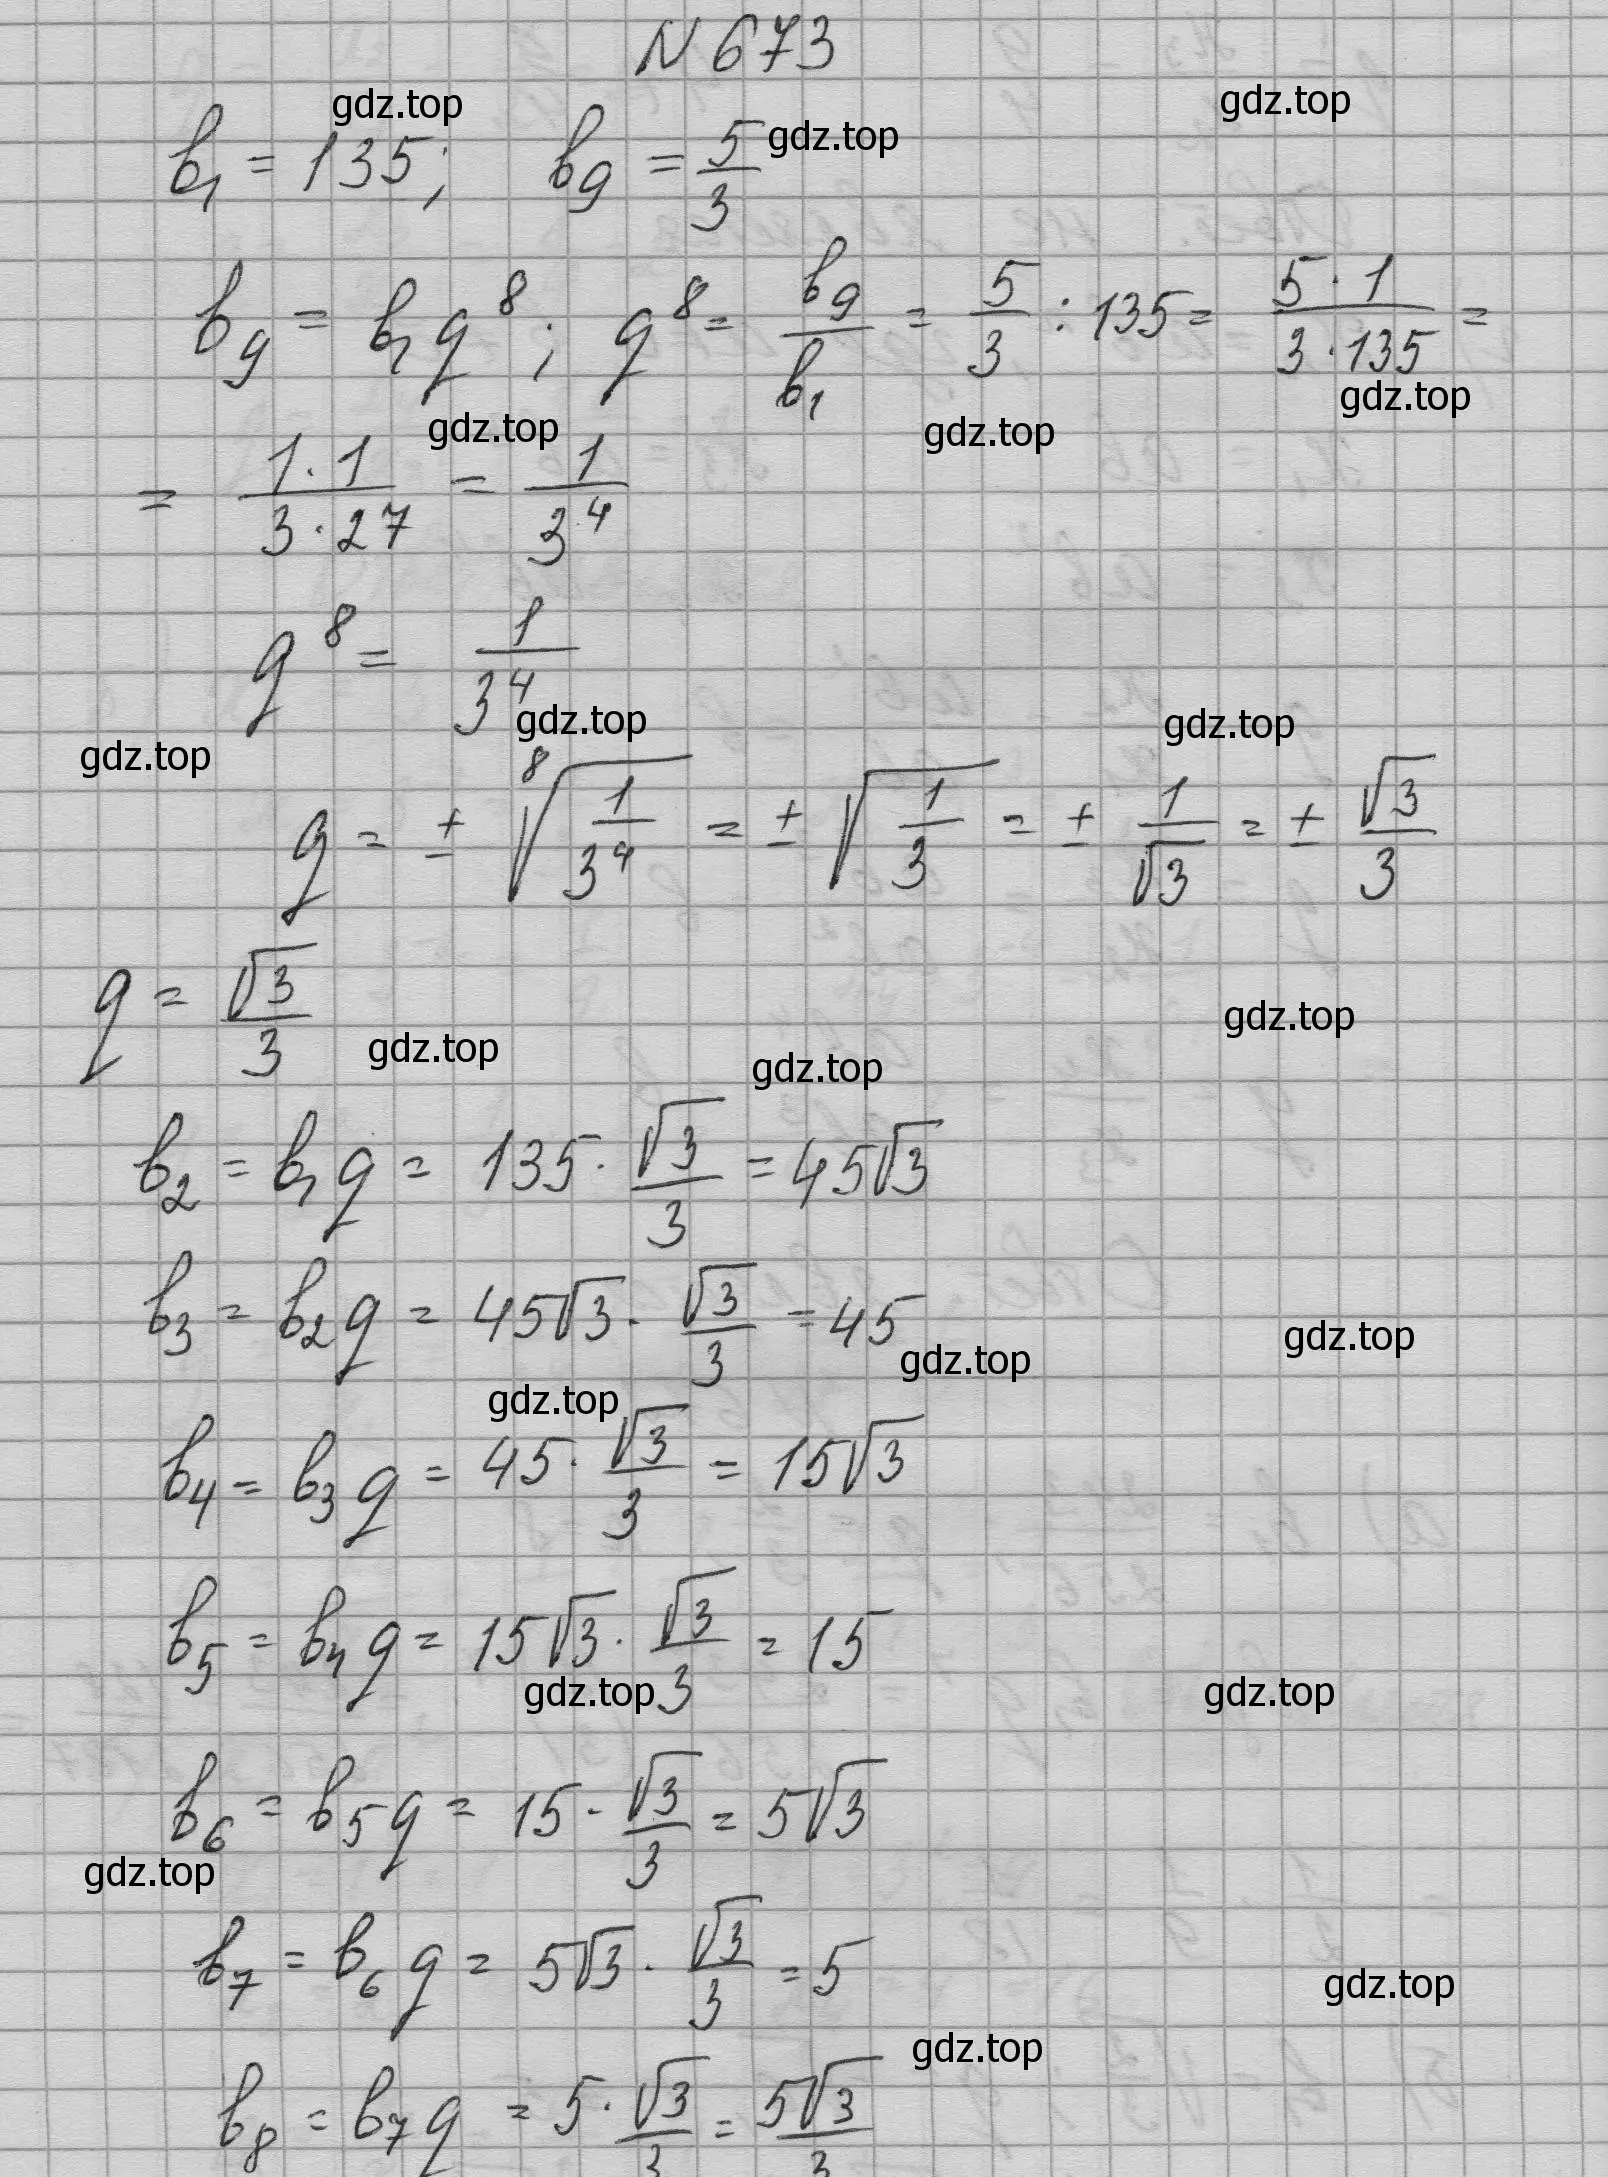 N 673
gdz.top gdz.top
b₁ = 135; b₉ = 5/3 gdz.top
b₉ = b₁q⁸; q⁸ = b₉/b₁ = 5/3 : 135 = 5·1/3·135 =
gdz.top gdz.top gdz.top
= 1·1/3·27 = 1/3⁴
q⁸ = 1/3⁴
gdz.top gdz.top gdz.top
q = ± ⁸√(1/3⁴) = ± √(1/3) = ± 1/√3 = ± √3/3
q = √3/3
gdz.top gdz.top gdz.top
b₂ = b₁q = 135 · √3/3 = 45√3
b₃ = b₂q = 45√3 · √3/3 = 45
gdz.top gdz.top gdz.top
b₄ = b₃q = 45 · √3/3 = 15√3
b₅ = b₄q = 15√3 · √3/3 = 15
gdz.top gdz.top
b₆ = b₅q = 15 · √3/3 = 5√3
gdz.top
b₇ = b₆q = 5√3 · √3/3 = 5
gdz.top gdz.top
b₈ = b₇q = 5 · √3/3 = 5√3/3